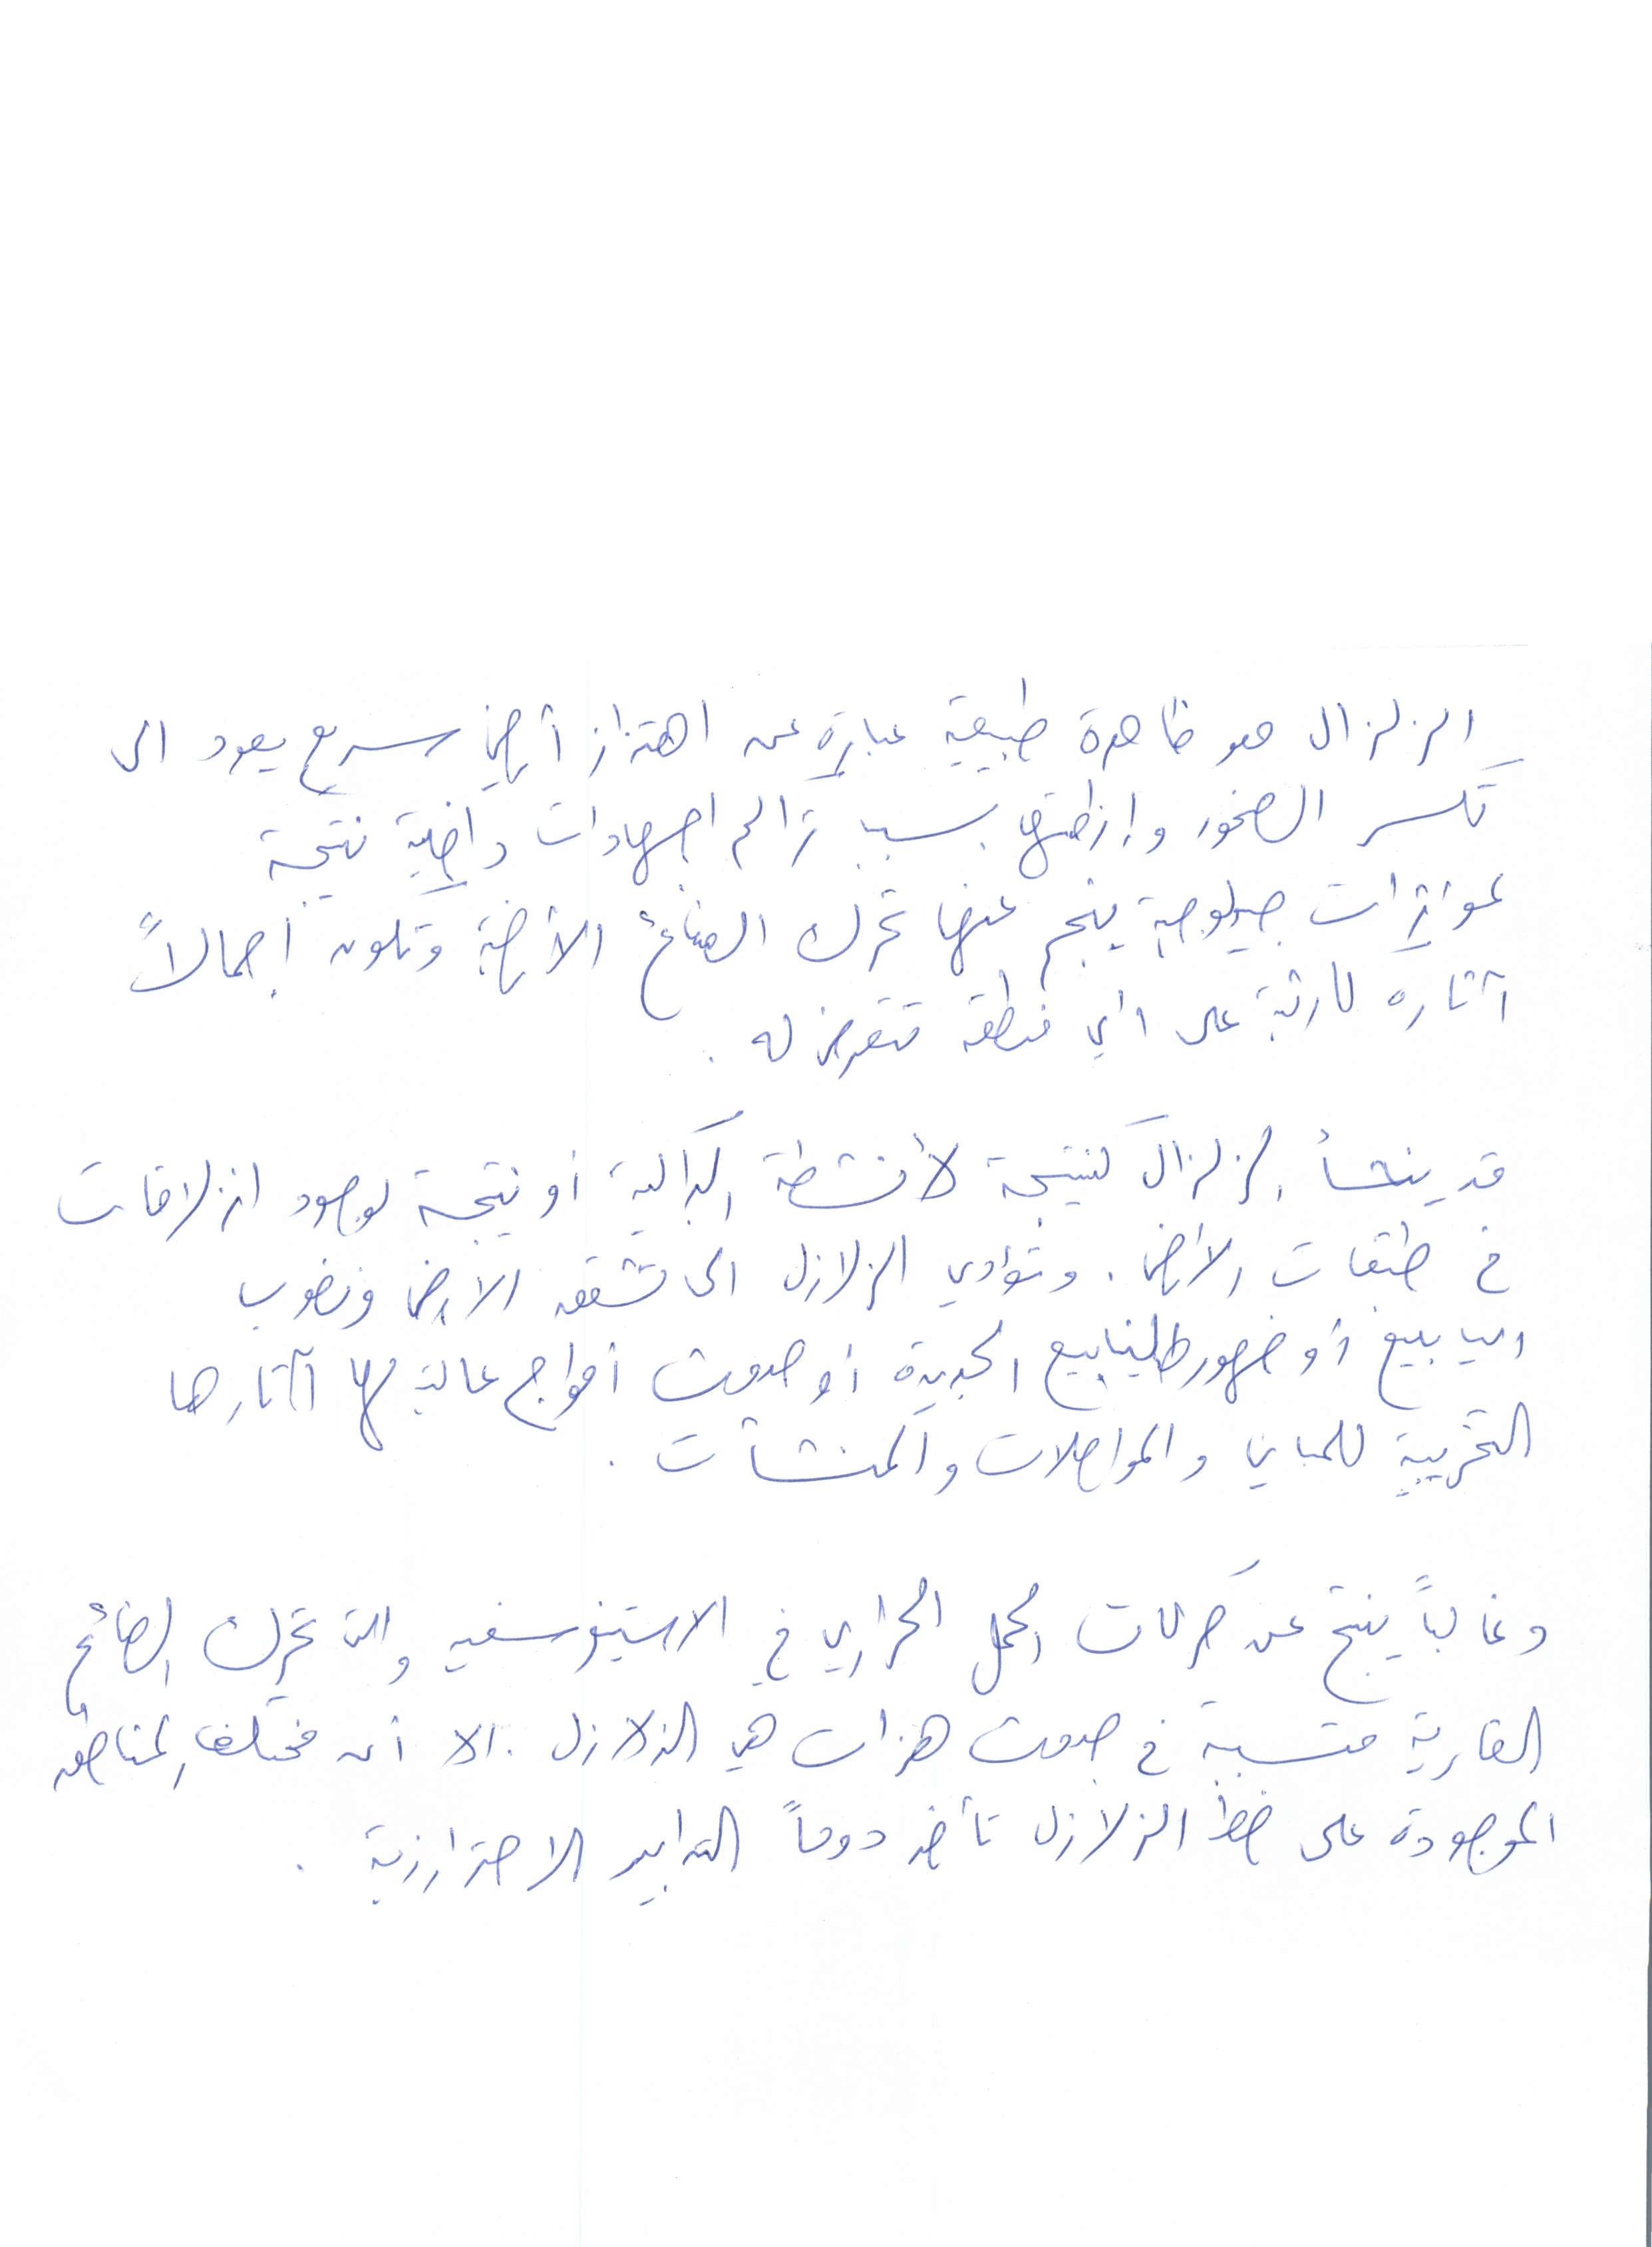 الزلزال هو ظاهرة طبيعية عبارة عن اهتزاز أرضي سريع يعود الى
تكسر الصخور وإزاحتها بسبب تراكم اجهادات داخلية نتيجة
لمؤثرات جيولوجية ينجم عنها تحرك الصفائح الأرضية وتكون أجمالاً
آثاره كارثية على اي منطقة تتعرض له .
قد ينشأ الزلزال كنتيجة لأنشطة البراكين أو نتيجة لوجود انزلاقات
في طبقات الأرض . وتؤدي الزلازل الى تشقق الارض ونضوب
الينابيع أو ظهور الينابيع الجديدة أو حدوث أمواج عالية لها آثارها
التخريبية للمباني والمواصلات والمنشآت .
وغالباً ينتج عن حركات الحمل الحراري في الاستينوسفير والتي تحرك الصفائح
القارية متسببة في حدوث هزات هي الزلازل . الا أن مختلف المناطق
الموجودة على خط الزلازل تأخذ دوماً التدابير الاحترازية .